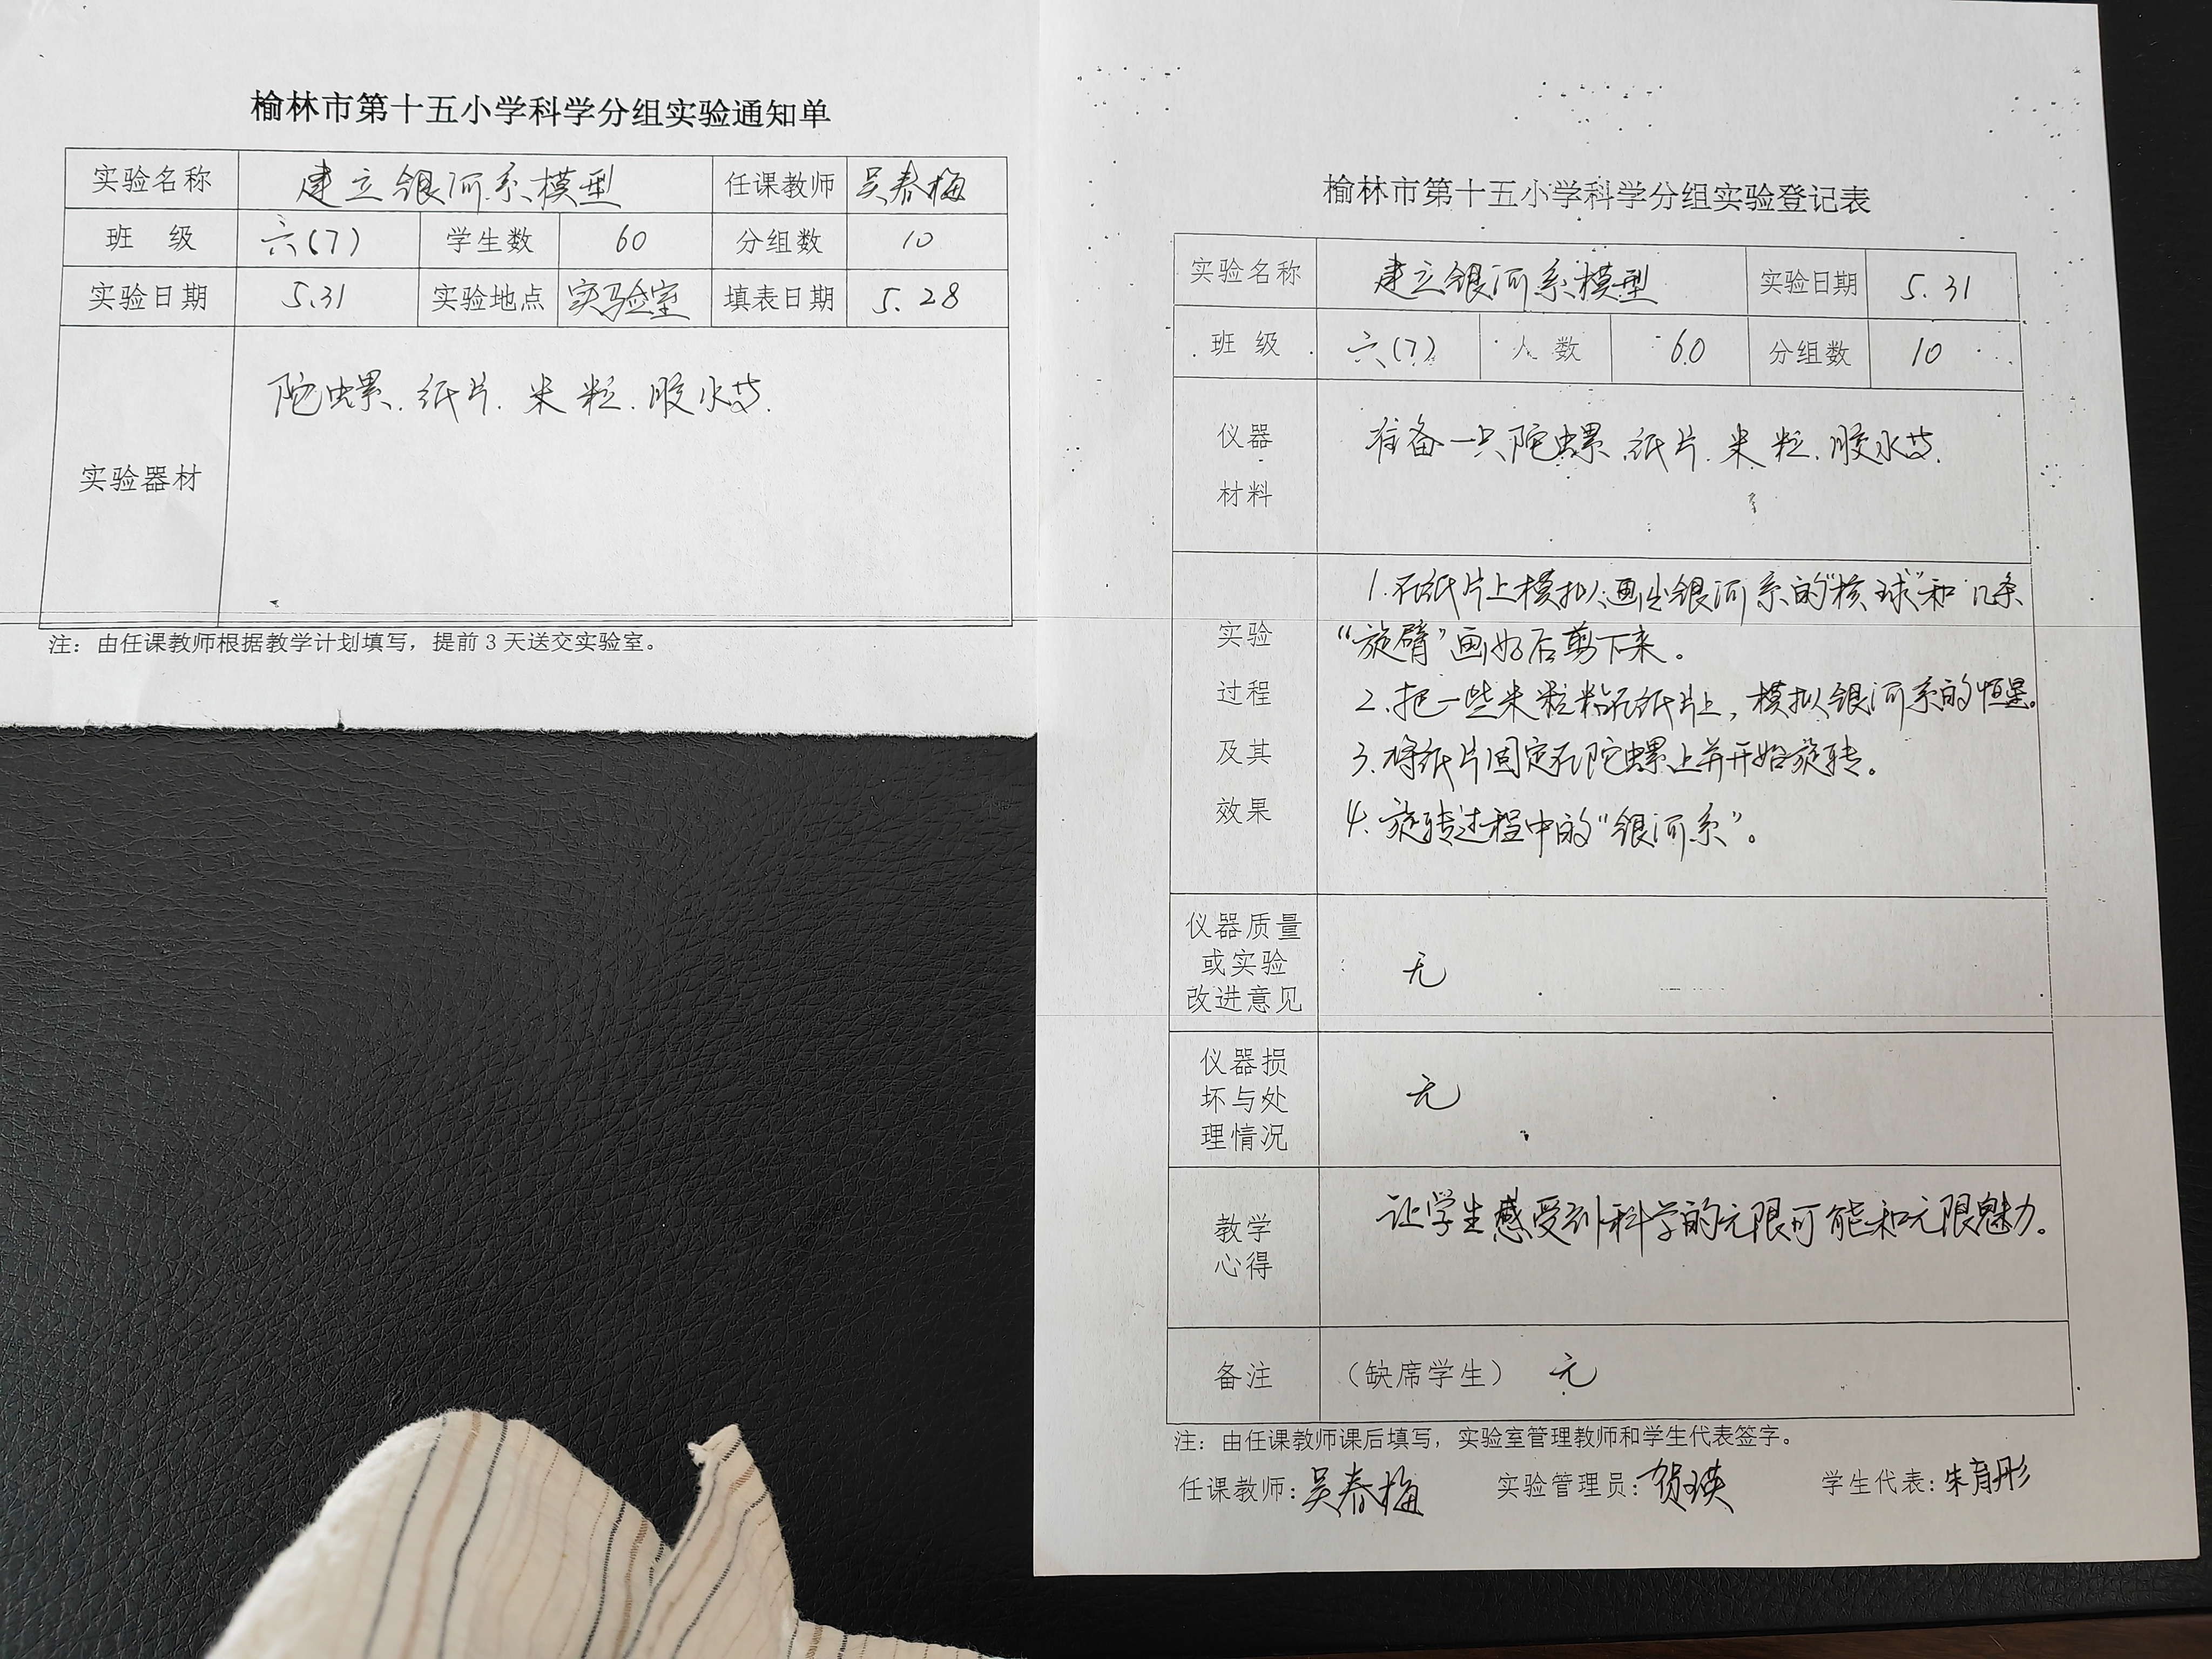 榆林市第十五小学科学分组实验通知单
实验名称 建立银河系模型 任课教师 吴春梅
班 级 六(7) 学生数 60 分组数 10
实验日期 5.31 实验地点 实验室 填表日期 5.28
实验器材 陀螺.纸片.米粒.胶水等.
注：由任课教师根据教学计划填写，提前3天送交实验室。
榆林市第十五小学科学分组实验登记表
实验名称 建立银河系模型 实验日期 5.31
班 级 六(7) 人 数 60 分组数 10
仪器
材料
准备一只陀螺.纸片.米粒.胶水等.
实验
过程
及其
效果
1.在纸片上模拟画出银河系的“核球”和几条
“旋臂”画好后剪下来。
2.把一些米粒粘在纸片上，模拟银河系的恒星。
3.将纸片固定在陀螺上并开始旋转。
4.旋转过程中的“银河系”。
仪器质量
或实验
改进意见
无
仪器损
坏与处
理情况
无
教学
心得
让学生感受到科学的无限可能和无限魅力。
备注 （缺席学生） 无
注：由任课教师课后填写，实验室管理教师和学生代表签字。
任课教师：吴春梅 实验管理员：贺瑛 学生代表：朱育彤